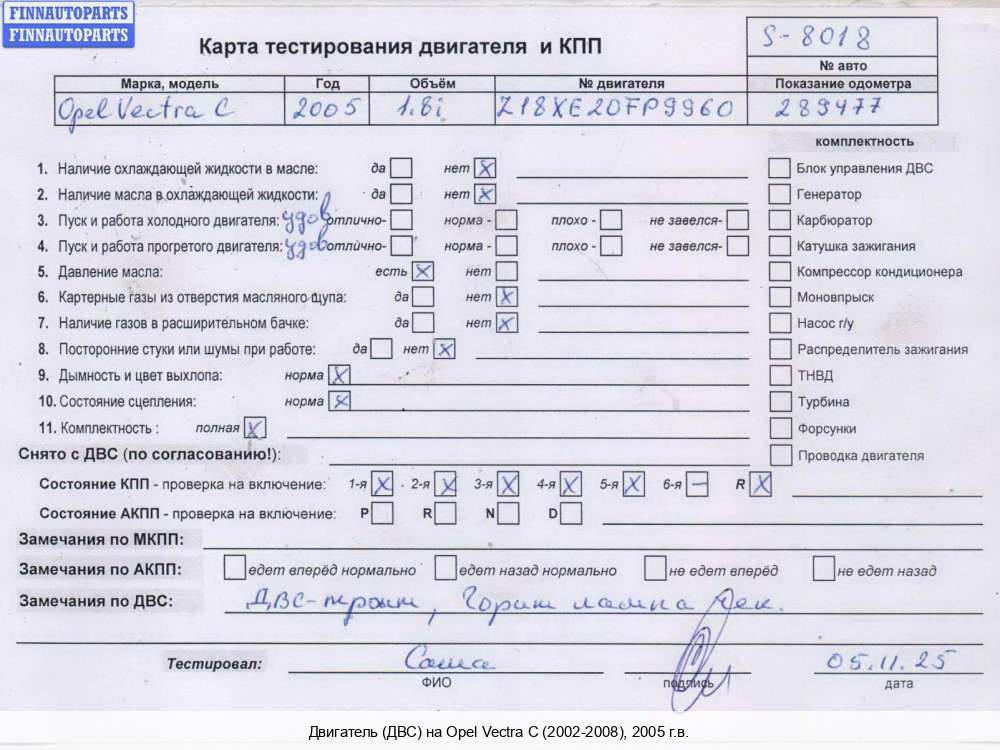 FINNAUTOPARTS
FINNAUTOPARTS
Карта тестирования двигателя и КПП
S-8018
№ авто
Марка, модель Год Объём № двигателя Показание одометра
Opel Vectra C 2005 1.8i Z18XE20FP9960 289477
комплектность
1. Наличие охлаждающей жидкости в масле: да нет X Блок управления ДВС
2. Наличие масла в охлаждающей жидкости: да нет X Генератор
3. Пуск и работа холодного двигателя: удов отлично- норма - плохо - не завелся- Карбюратор
4. Пуск и работа прогретого двигателя: удов отлично- норма - плохо - не завелся- Катушка зажигания
5. Давление масла: есть X нет Компрессор кондиционера
6. Картерные газы из отверстия масляного щупа: да нет X Моновпрыск
7. Наличие газов в расширительном бачке: да нет X Насос г/у
8. Посторонние стуки или шумы при работе: да нет X Распределитель зажигания
9. Дымность и цвет выхлопа: норма X ТНВД
10. Состояние сцепления: норма X Турбина
11. Комплектность : полная X Форсунки
Снято с ДВС (по согласованию!): Проводка двигателя
Состояние КПП - проверка на включение: 1-я X 2-я X 3-я X 4-я X 5-я X 6-я – R X
Состояние АКПП - проверка на включение: P R N D
Замечания по МКПП:
Замечания по АКПП: едет вперёд нормально едет назад нормально не едет вперёд не едет назад
Замечания по ДВС: ДВС-троит, Горит лампа чек.
Тестировал: Саша 05.11.25
ФИО подпись дата
Двигатель (ДВС) на Opel Vectra C (2002-2008), 2005 г.в.